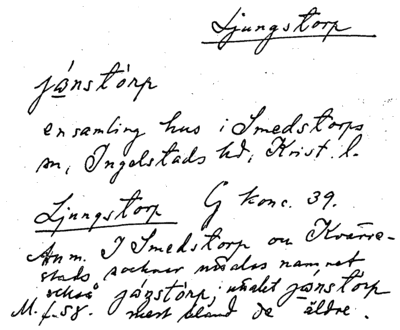 Ljungstorp
jánstórp
en samling hus i Smedstorps
sn, Ingelstads hd, Krist. l.
Ljungstorp G konc. 39.
Anm. I Smedstorp ou Kvärre-
stads socknar uttalas namnet
också jánstórp, uttalet jánstórp
M. f. 58. mest bland de äldre.